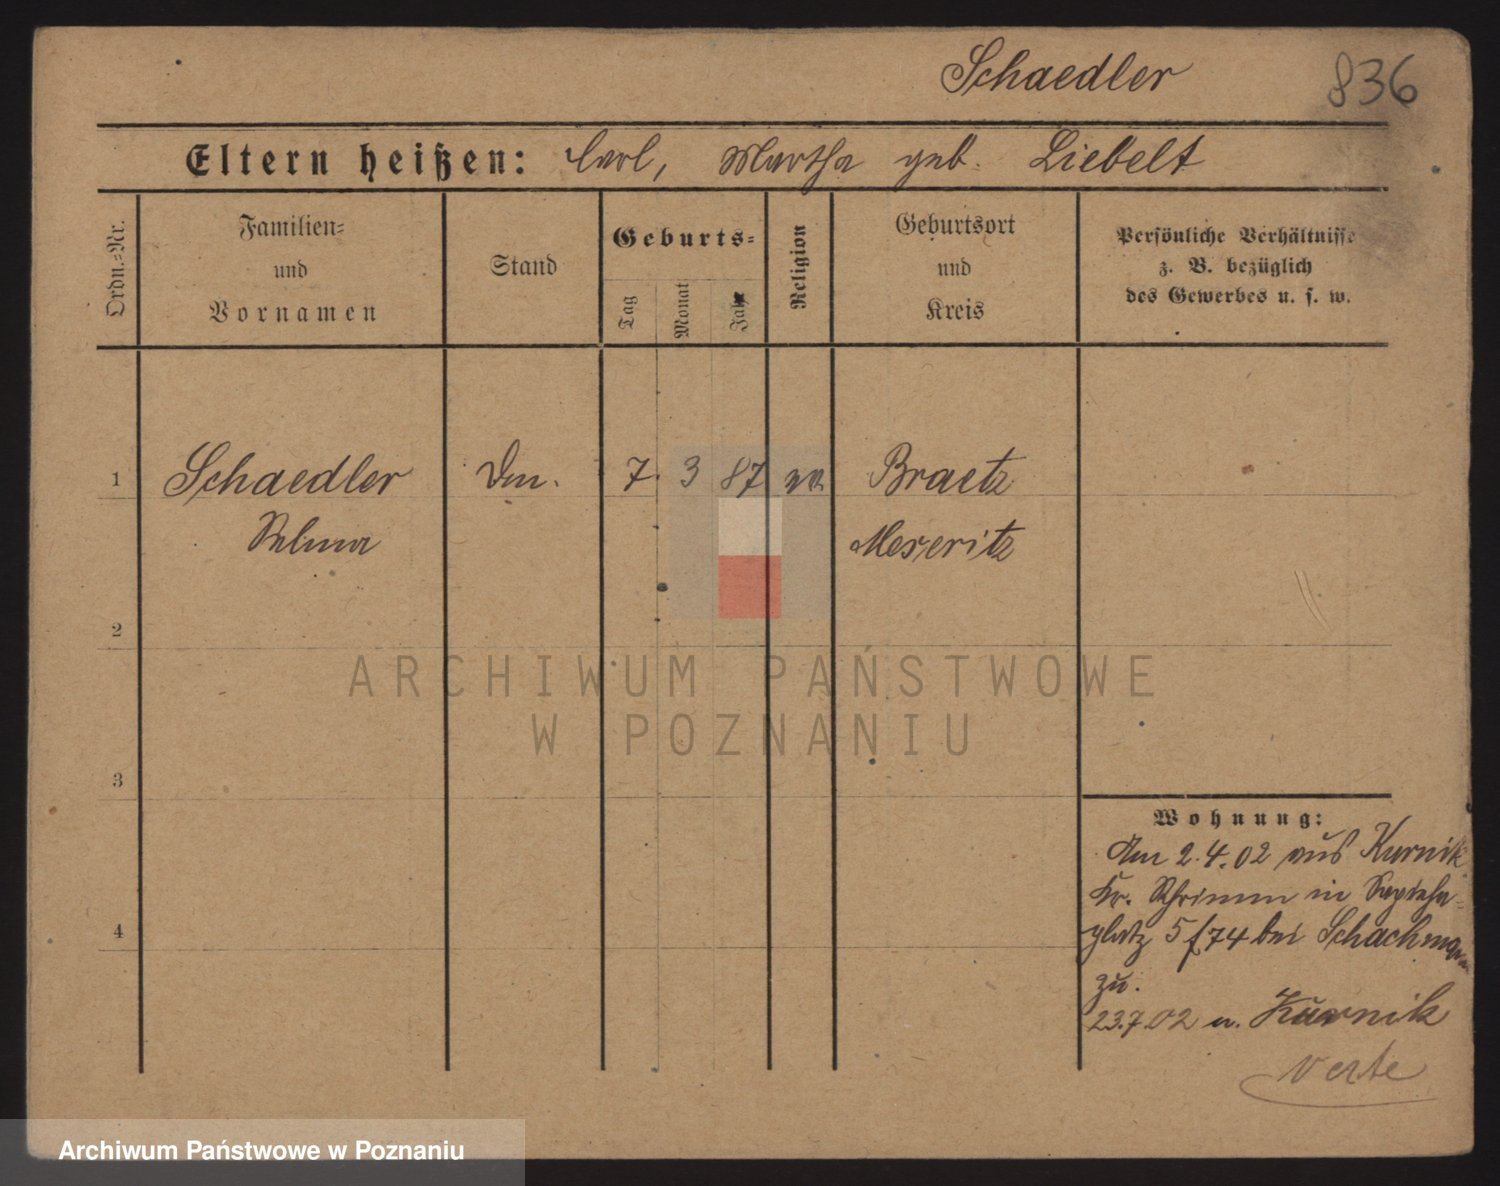 Schaedler 836
Eltern heißen: Carl, Martha geb. Liebelt
Ordn.-Nr.
Familien- und Vornamen
Stand
Geburts-
Tag
Monat
Jahr
Religion
Geburtsort und Kreis
Persönliche Verhältnisse z. B. bezüglich des Gewerbes u. s. w.
1 Schaedler 7. 3 87 Braetz
Selma Meseritz
2
ARCHIWUM PAŃSTWOWE
W POZNANIU
3
Wohnung:
Am 2.4.02 aus Kurnik
Kr. Schrimm in Sapieha-
4
platz 5 f74 bei Schachmann
zu.
23.7.02 n. Kurnik
verte
Archiwum Państwowe w Poznaniu